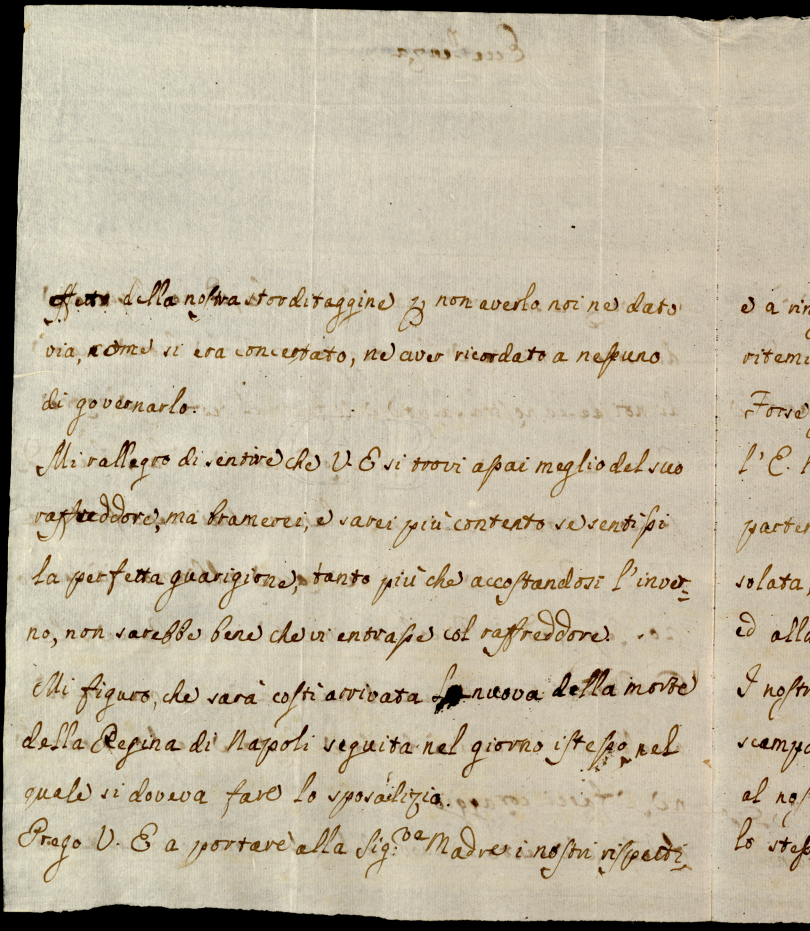 effetto della nostra storditaggine p non averlo noi ne dato
via, come si era concertato, ne aver ricordato a nessuno
di governarlo.
Mi rallegro di sentire che V. E si trovi assai meglio del suo
raffreddore, ma bramerei, e sarei più contento se sentissi
la perfetta guarigione, tanto più che accostandosi l'inver=
no, non sarebbe bene che vi entrasse col raffreddore.
Mi figuro, che sarà costì arrivata la nuova della morte
della Regina di Napoli seguita nel giorno istesso, nel
quale si doveva fare lo sposalizio.
Prego V. E a portare alla Sig.ra Madre i nostri rispetti,
e a rin
ritemi
Forse
l'E.
parten
solata,
ed alla
I nostr
scampa
al nos
lo stes